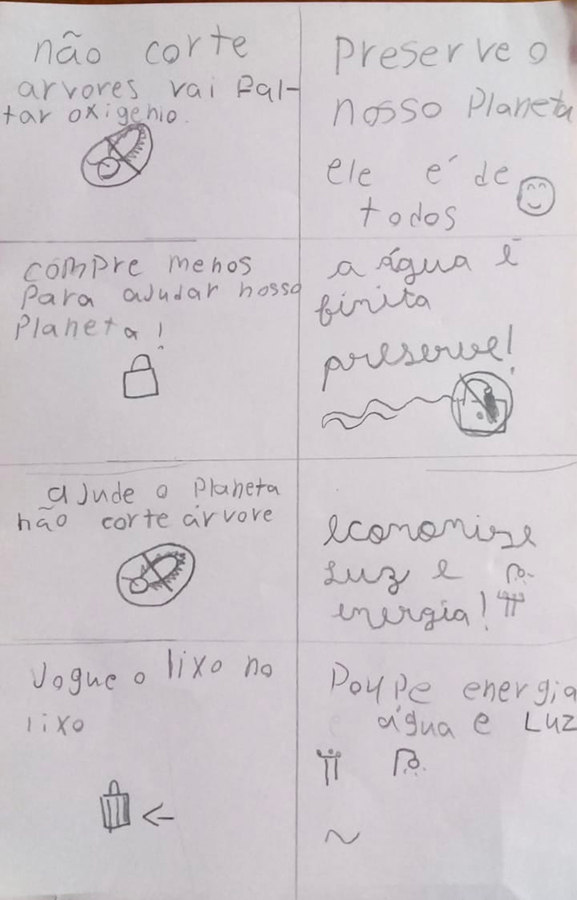 não corte
arvores vai fal-
tar oxigenio.
Preserve o
nosso Planeta
ele é de
todos
compre menos
Para ajudar nosso
Planeta!
a água é
finita
preserve!
ajude o Planeta
não corte árvore
economize
Luz e
energia!
Jogue o lixo no
lixo
Poupe energia
água e Luz